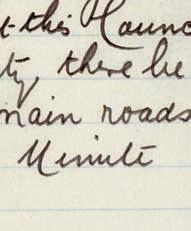 this Counc
ty, there be
main roads
Minute